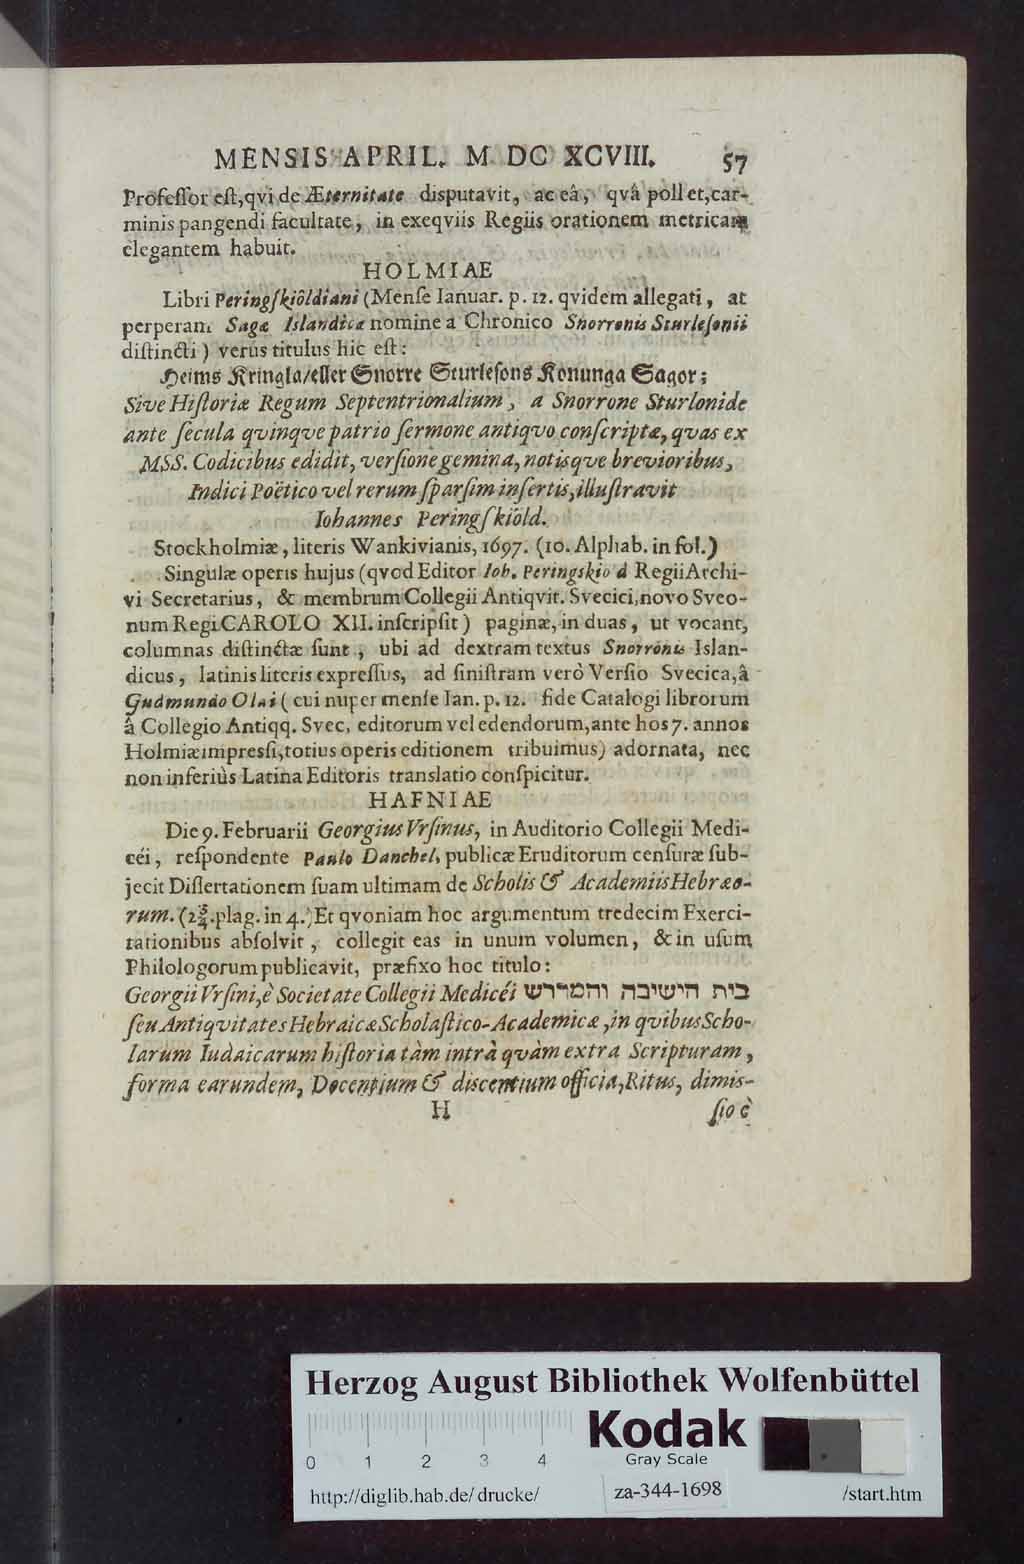 MENSIS APRIL. M DC XCVIII. 57
Profeſſor eſt,qvi de Æternitate disputavit, ac eâ, qvâ pollet,car-
minis pangendi facultate, in exeqviis Regiis orationem metricam
elegantem habuit.
HOLMIAE
Libri Peringſkiöldiani (Menſe Ianuar. p. 12. qvidem allegati, at
perperam Sagæ Islandicæ nomine a Chronico Snorronis Sturleſonii
diſtincti) verus titulus hic eſt:
Heims Kringla/eller Snorre Sturleſons Konunga Sagor;
Sive Hiſtoriæ Regum Septentrionalium, a Snorrone Sturlonide
ante ſecula qvinqve patrio ſermone antiqvo conſcriptæ, qvas ex
MSS. Codicibus edidit, verſione gemina, notisqve brevioribus,
Indici Poëtico vel rerum ſparſim inſertis, illuſtravit
Iohannes Peringſkiöld.
Stockholmiæ, literis Wankivianis, 1697. (10. Alphab. in fol.)
Singulæ operis hujus (qvod Editor Ioh. Peringskio d Regii Archi-
vi Secretarius, & membrum Collegii Antiqvit. Svecici, novo Sveo-
num Regi CAROLO XII. inſcripſit) paginæ, in duas, ut vocant,
columnas diſtinctæ ſunt, ubi ad dextram textus Snorronis Islan-
dicus, latinis literis expreſſus, ad ſiniſtram verò Verſio Svecica, â
Gudmundo Olai (cui nuper menſe Ian. p. 12. fide Catalogi librorum
â Collegio Antiqq. Svec, editorum vel edendorum, ante hos 7. annos
Holmiæ impresſi, totius operis editionem tribuimus) adornata, nec
non inferiùs Latina Editoris translatio conſpicitur.
HAFNIAE
Die 9. Februarii Georgius Vrſinus, in Auditorio Collegii Medi-
céi, reſpondente Paulo Danchel, publicæ Eruditorum cenſuræ ſub-
jecit Diſſertationem ſuam ultimam de Scholis & Academiis Hebræo-
rum. (2¾.plag. in 4.) Et qvoniam hoc argumentum tredecim Exerci-
tationibus abſolvit, collegit eas in unum volumen, & in uſum
Philologorum publicavit, præfixo hoc titulo:
Georgii Vrſini, è Societate Collegii Medicéi בית הישיבה והמדרש
ſeu Antiqvitates Hebraicæ Scholaſtico-Academicæ, in qvibus Scho-
larum Iudaicarum hiſtoria tàm intrà quàm extra Scripturam,
forma earundem, Docentium & discentium officia, Ritus, dimis-
H ſio è
Herzog August Bibliothek Wolfenbüttel
Kodak
Gray Scale
0 1 2 3 4
http://diglib.hab.de/drucke/ za-344-1698 /start.htm